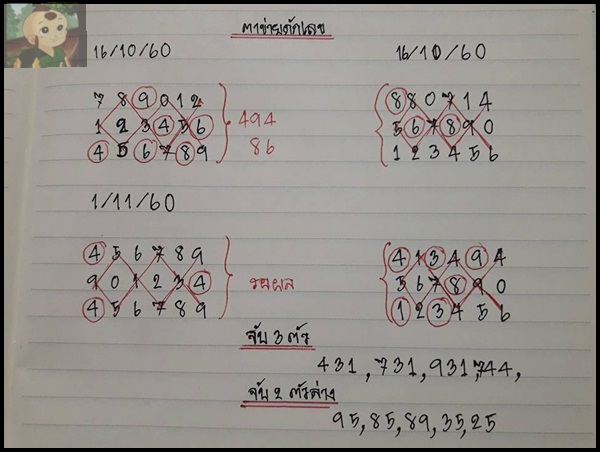 ตาข่ายดักเลข
16/10/60 16/10/60
7 8 9 0 1 2 8 8 0 7 1 4
1 2 3 4 5 6 494 5 6 7 8 9 0
4 5 6 7 8 9 86 1 2 3 4 5 6
1/11/60
4 5 6 7 8 9 4 1 3 4 9 4
9 0 1 2 3 4 รอผล 5 6 7 8 9 0
4 5 6 7 8 9 1 2 3 4 5 6
จับ 3 ตัว
431, 731, 931, 744,
จับ 2 ตัวล่าง
95, 85, 89, 35, 25